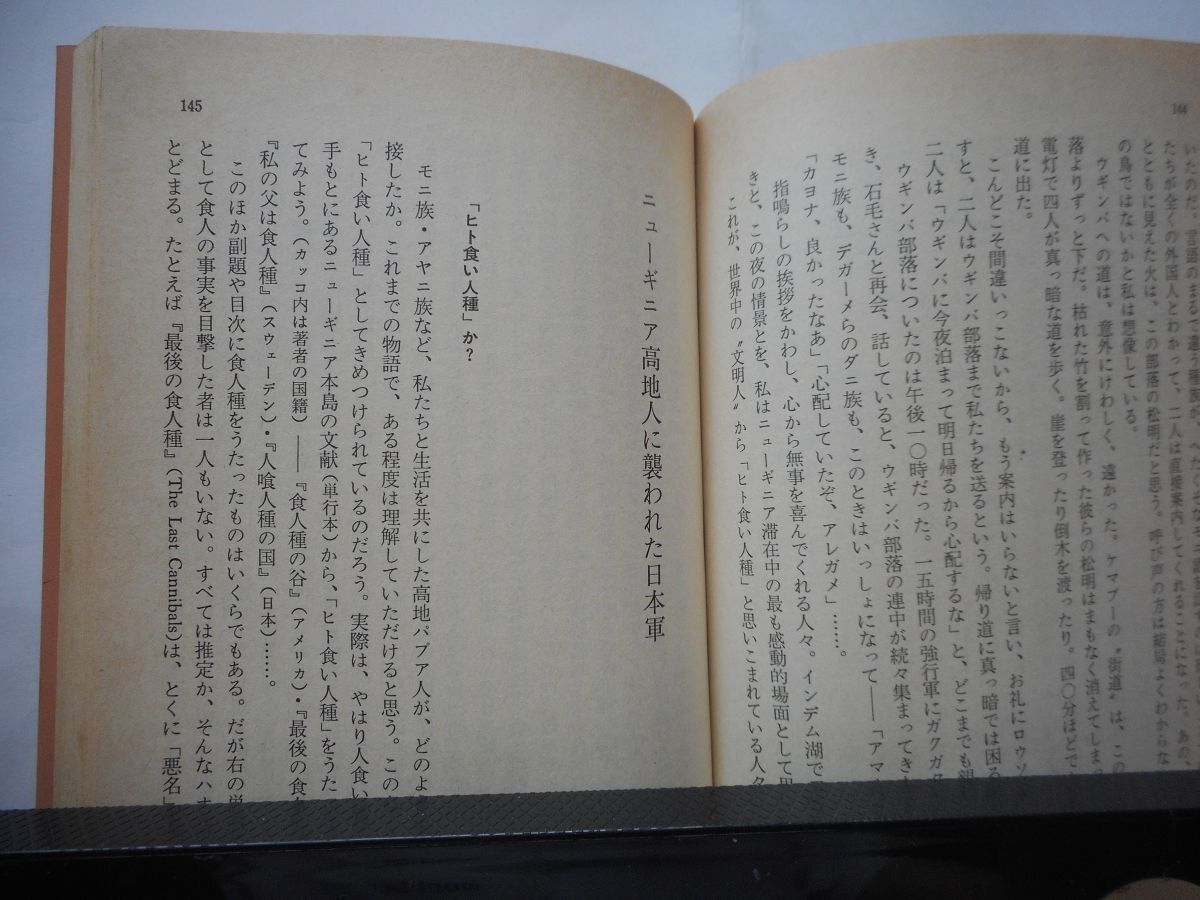 144
いたのだ。言語のまるで違う種族が
たちが全くの外国人とわかって、二人は直接案内してくれることになった。あの、
とともに見えた火は、この部落の松明だと思う。呼び声の方は結局よくわからな
の鳥ではないかと私は想像している。
ウギンバへの道は、意外にけわしく、遠かった。ケマブーの〝街道〟は、この
落よりずっと下だ。枯れた竹を割って作った彼らの松明はまもなく消えてしま
電灯で四人が真っ暗な道を歩く。崖を登ったり倒木を渡ったり。四〇分ほどで
道に出た。
こんどこそ間違いっこないから、もう案内はいらないと言い、お礼にロウソ
すと、二人はウギンバ部落まで私たちを送るという。帰り道に真っ暗では困る
二人は「ウギンバに今夜泊まって明日帰るから心配するな」と、どこまでも親
ウギンバ部落についたのは午後一〇時だった。一五時間の強行軍にガクガク
き、石毛さんと再会、話していると、ウギンバ部落の連中が続々集まってき
モニ族も、デガーメらのダニ族も、このときはいっしょになって――「アマ
「カヨナ、良かったなあ」「心配していたぞ、アレガメ」……。
指鳴らしの挨拶をかわし、心から無事を喜んでくれる人々。インデム湖で
きと、この夜の情景とを、私はニューギニア滞在中の最も感動的場面として思
これが、世界中の〝文明人〟から「ヒト食い人種」と思いこまれている人々
145
ニューギニア高地人に襲われた日本軍
「ヒト食い人種」か?
モニ族・アヤニ族など、私たちと生活を共にした高地パプア人が、どのよ
接したか。これまでの物語で、ある程度は理解していただけると思う。この
「ヒト食い人種」としてきめつけられているのだろう。実際は、やはり人食い
手もとにあるニューギニア本島の文献(単行本)から、「ヒト食い人種」をうた
てみよう。(カッコ内は著者の国籍)――『食人種の谷』(アメリカ)・『最後の食
『私の父は食人種』(スウェーデン)・『人喰人種の国』(日本)……。
このほか副題や目次に食人種をうたったものはいくらでもある。だが右の単
として食人の事実を目撃した者は一人もいない。すべては推定か、そんなハナ
とどまる。たとえば『最後の食人種』(The Last Cannibals)は、とくに「悪名」